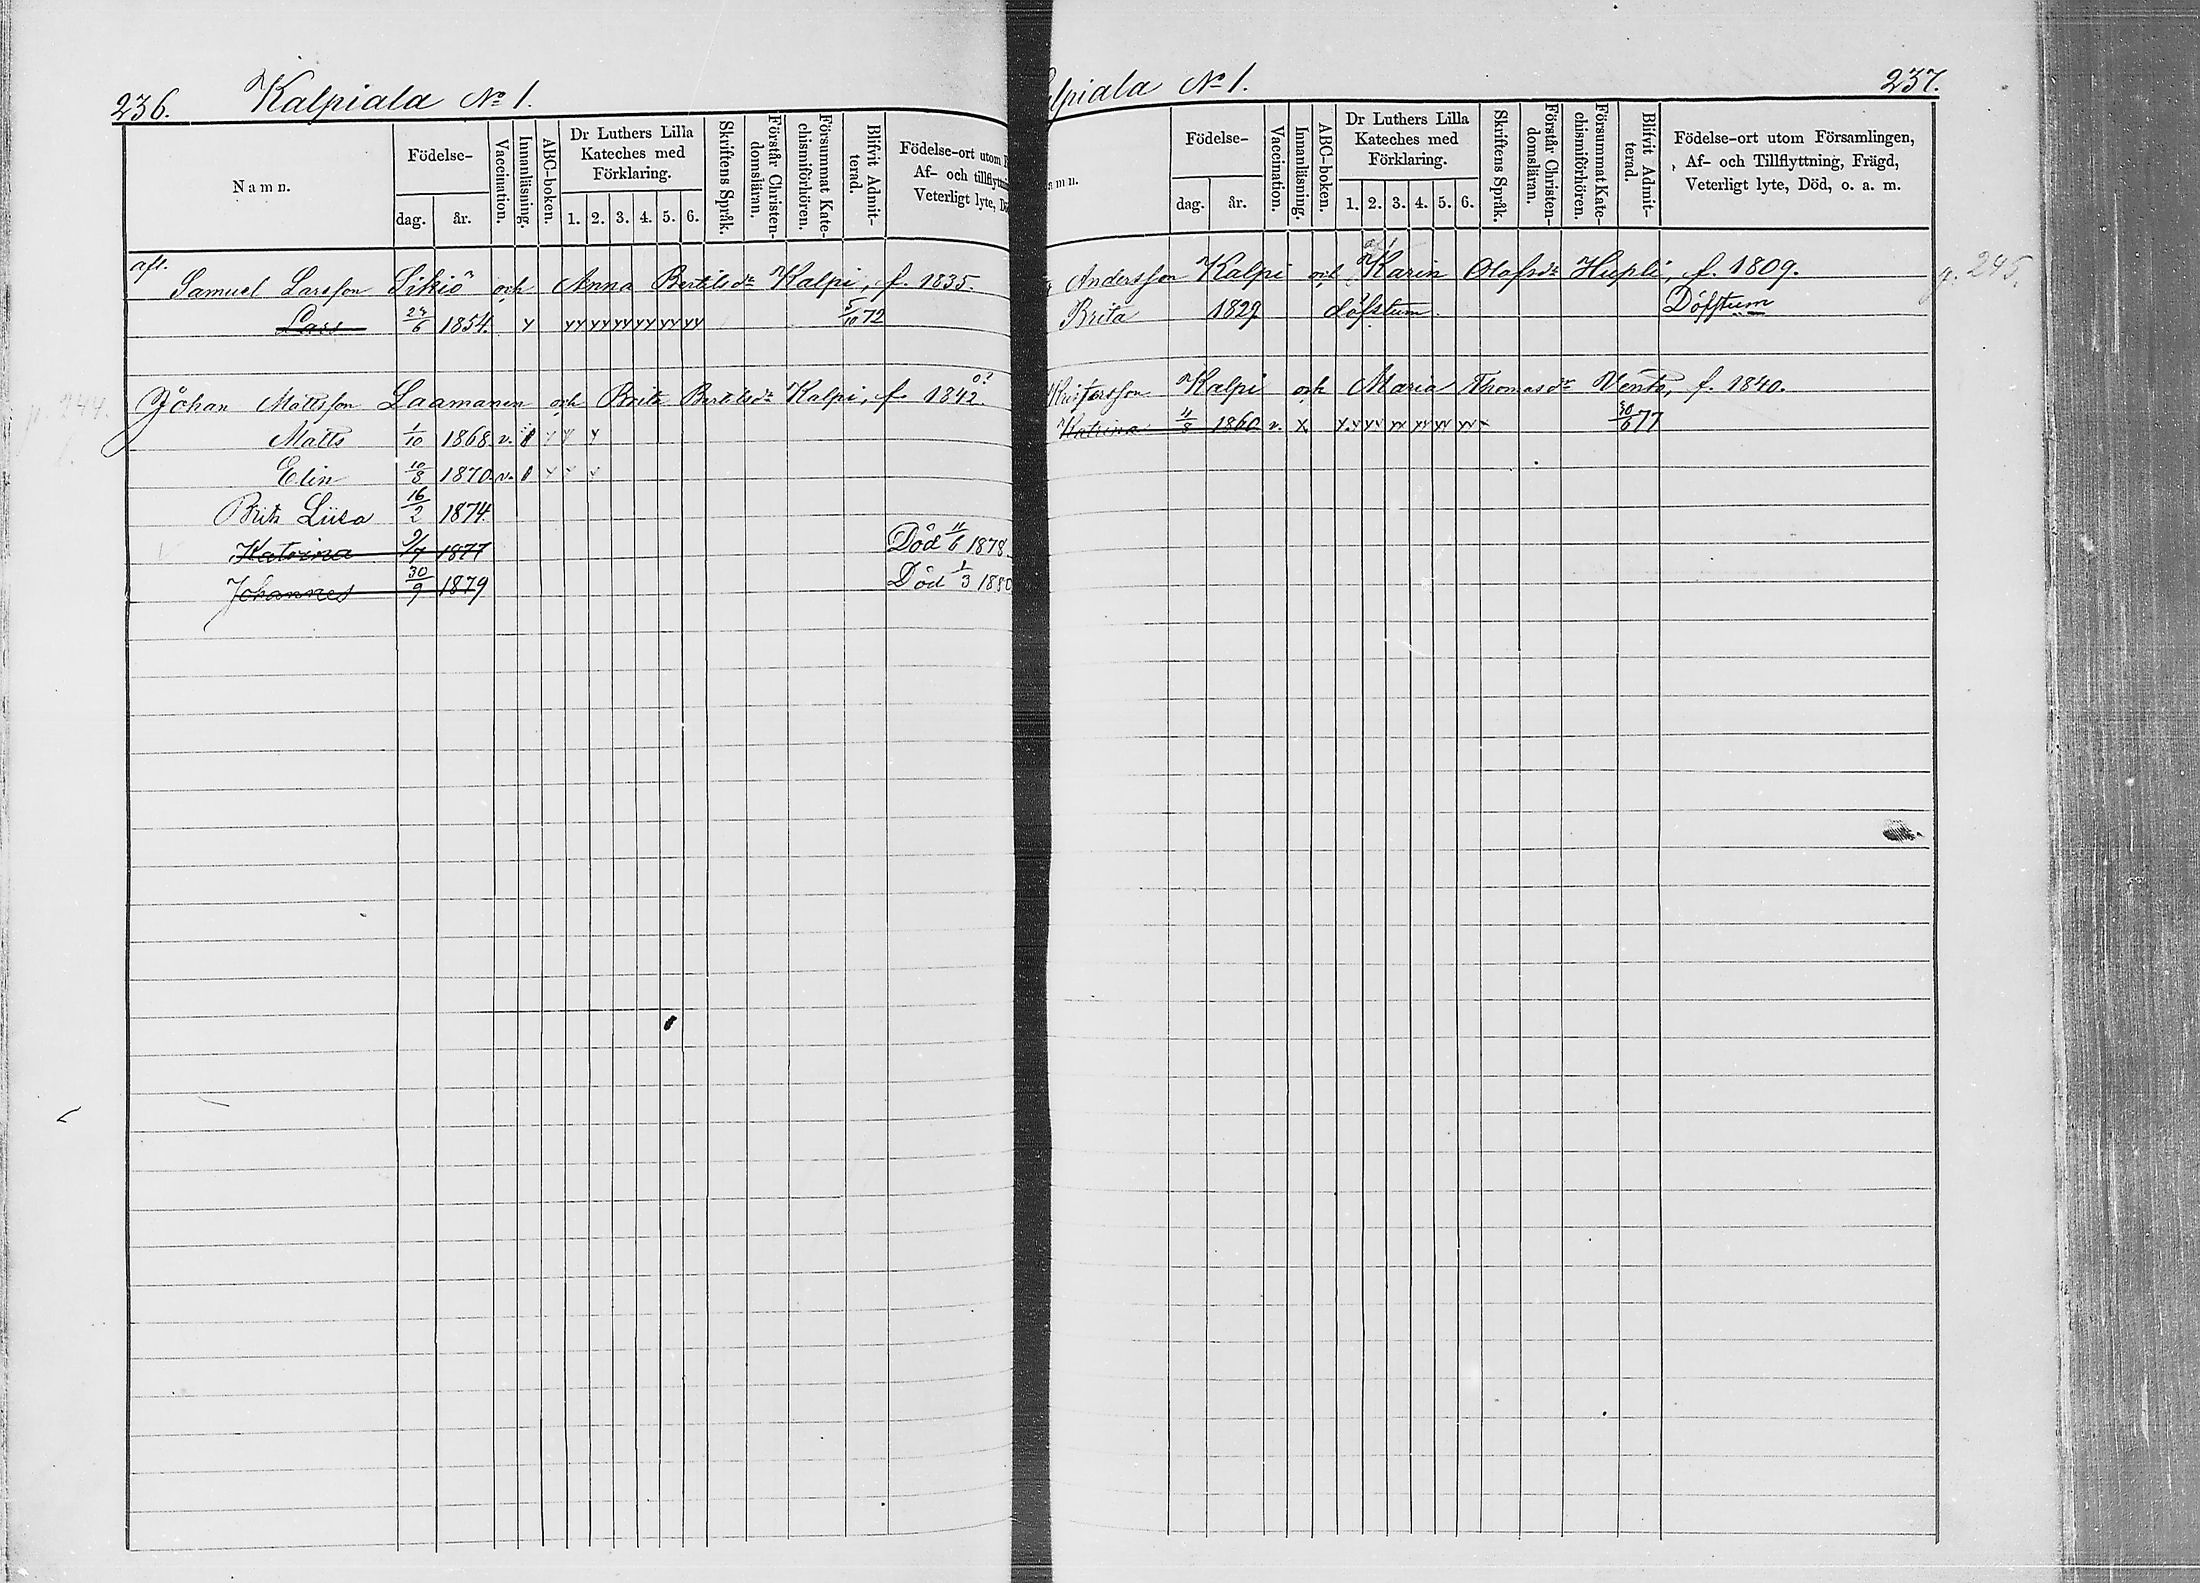 236. Kalpiala No 1.
Namn. Födelse- dag. år. Vaccination. Innanläsning. ABC-boken. Dr Luthers Lilla Kateches med Förklaring. 1. 2. 3. 4. 5. 6. Skriftens Språk. Förstår Christen-domsläran. Försummat Kate-chismiförhören. Blifvit Admit-terad. Födelse-ort utom Af- och tillflyttni Veterligt lyte, D
aft.
Samuel Larsson Sikiö och Anna Bertilsdr Kalpi, f. 1835.
Lars 1854. x xx xx xx xx xx xx 5/10 72
p. 244. Johan Mattsson Laamanen och Brita Bertilsdr Kalpi, f. 1842.
Matts 1/10 1868 v. x x x
Elin 10/8 1870 v. x x x
Brita Liisa 16/2 1874.
Katrina 9/7 1877 Död 11/6 1878.
Johannes 30/9 1879 Död 1/3 1880
lpiala No 1. 237.
amn. Födelse- dag. år. Vaccination. Innanläsning. ABC-boken. Dr Luthers Lilla Kateches med Förklaring. 1. 2. 3. 4. 5. 6. Skriftens Språk. Förstår Christen-domsläran. Försummat Kate-chismiförhören. Blifvit Admit-terad. Födelse-ort utom Församlingen, Af- och Tillflyttning, Frägd, Veterligt lyte, Död, o. a. m.
Andersson Kalpi och Karin Olofsdr Hupli, f. 1809. p. 245.
Brita 1829 döfstum. Döfstum
Kristersson Kalpi och Maria Thomasdr Vento, f. 1840.
Katrina 11/8 1860 v. x x.x xx xx xx xx xx x 30/6 77